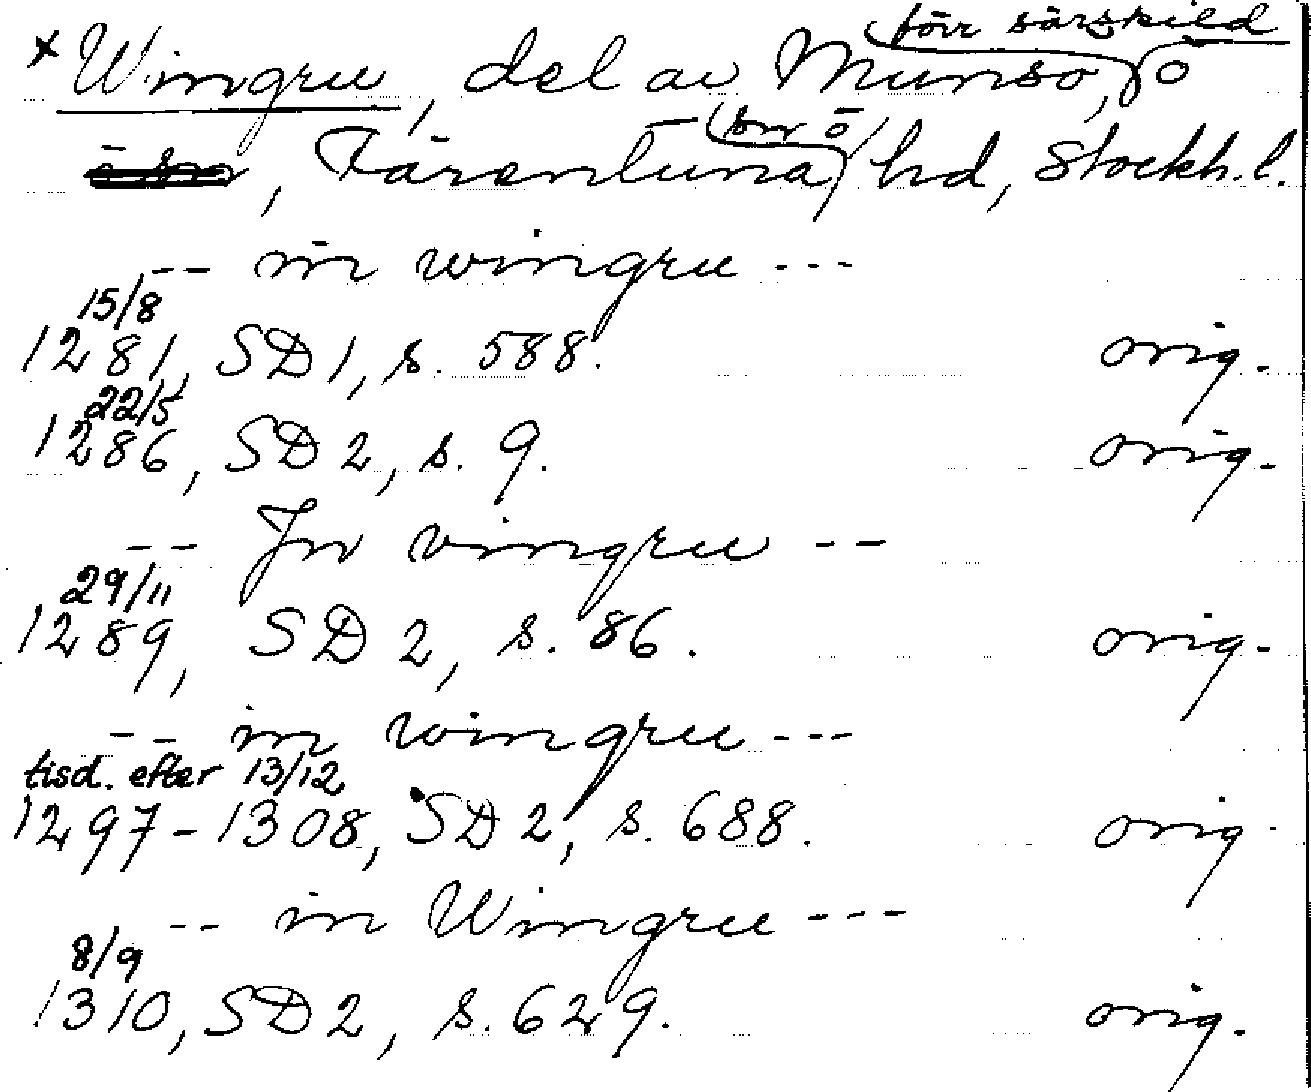 förr särskild
* Wingru, del av Munsö, ö
(förr ö)
, Färentuna hd, Stockh. l.
-- in wingru ---
15/8
1281, SD 1, s. 588. orig.
22/5
1286, SD 2, s. 9. orig.
-- Jn vingru --
29/11
1289, SD 2, s. 86. orig.
-- in wingru ---
tisd. efter 13/12
1297-1308, SD 2, s. 688. orig.
-- in Wingru ---
8/9
1310, SD 2, s. 629. orig.